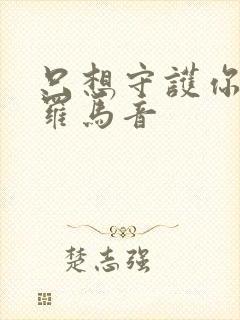 只想守護你
羅馬音
楚志强